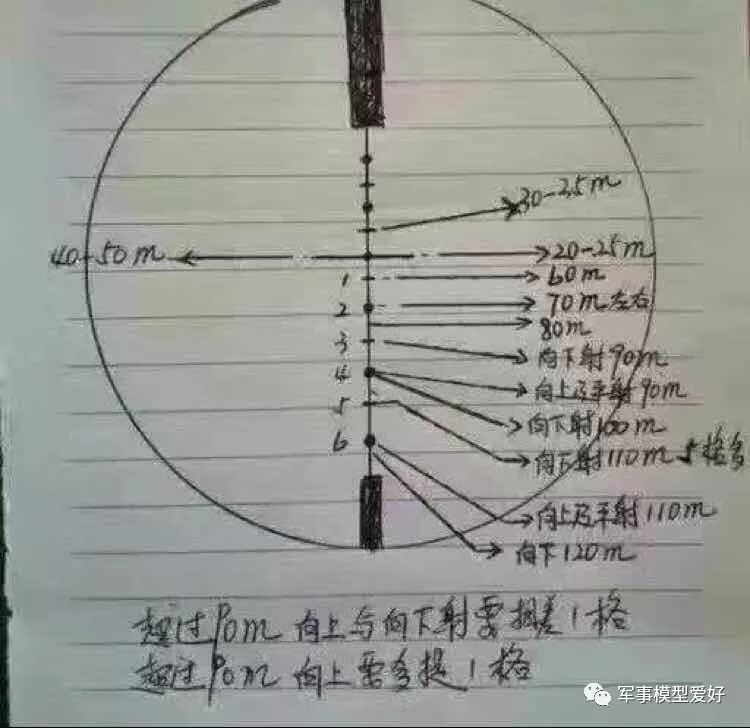 30-25m
40-50m
20-25m
1
60m
2
70m左右
80m
3
向下射90m
4
向上及平射90m
向下射100m
5
向下射110m 5格多
6
向上及平射110m
向下120m
超过90m 向上与向下射要相差1格
超过90m 向上需多提1格
军事模型爱好